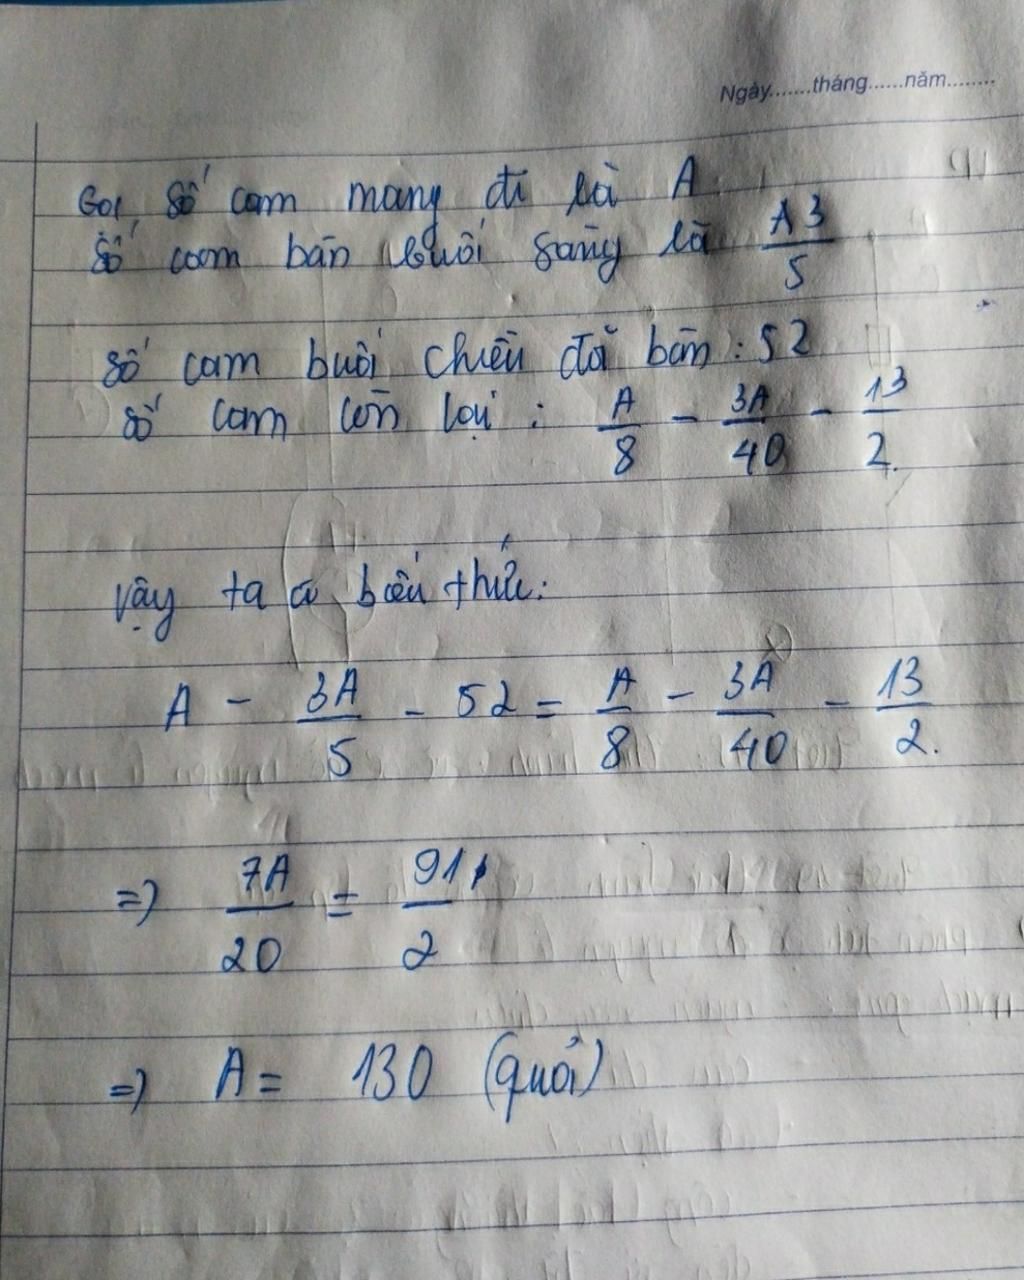 Ngày.......tháng......năm........
Gọi số cam mang đi là A
Số cam bán buổi sáng là A3/5
số cam buổi chiều đã bán : 52
số cam còn lại : A/8 - 3A/40 - 13/2.
vậy ta có biểu thức:
A - 3A/5 - 52 = A/8 - 3A/40 - 13/2.
=> 7A/20 = 91/2
=> A = 130 (quả)